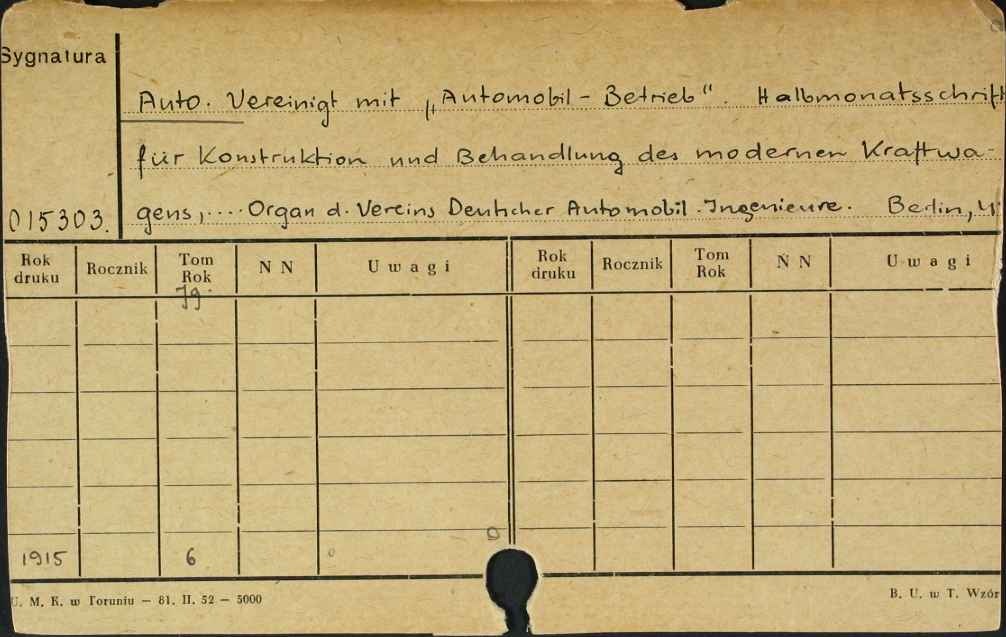 Sygnatura
Auto. Vereinigt mit „Automobil - Betrieb". Halbmonatsschrift
für Konstruktion und Behandlung des modernen Kraftwa-
015303. gens,.... Organ d. Vereins Deutscher Automobil-Ingenieure. Berlin,
Rok druku Rocznik Tom Rok N N Uwagi Rok druku Rocznik Tom Rok N N Uwagi
Jg.
1915 6
U. M. K. w Toruniu — 81. II. 52 — 5000 B. U. w T. Wzór